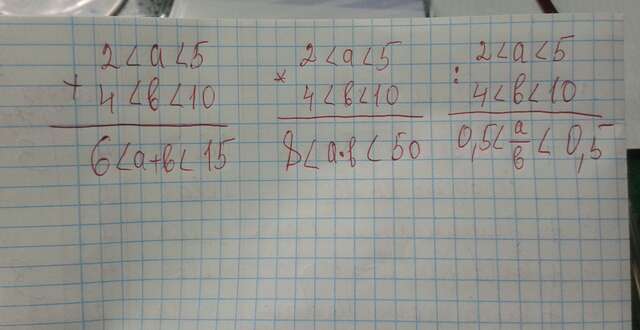 2 < a < 5
+ 4 < b < 10
6 < a+b < 15
2 < a < 5
* 4 < b < 10
8 < a·b < 50
2 < a < 5
: 4 < b < 10
0,5 < a/b < 0,5